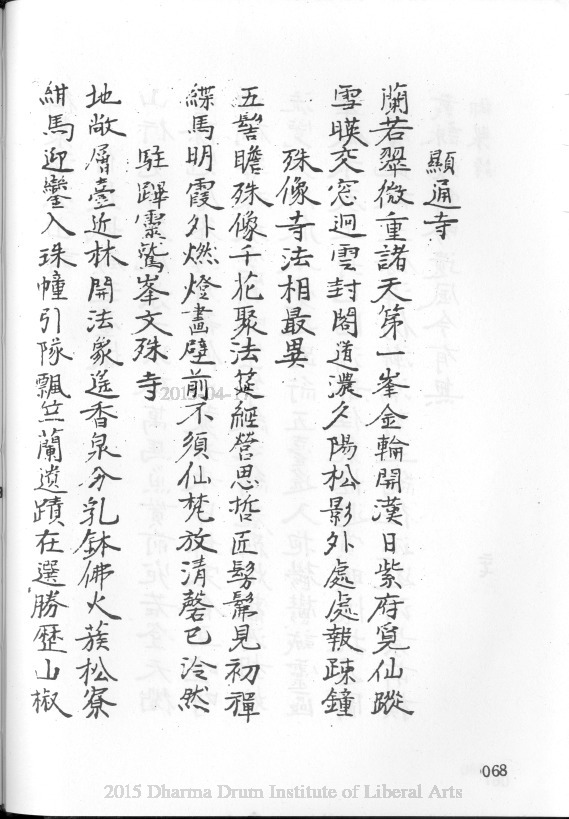 顯通寺
蘭若翠微重諸天第一峯金輪開漢日紫府覓仙蹤
雪暎交窓迥雲封閣道濃夕陽松影外處處報疎鐘
殊像寺法相最異
五髻瞻殊像千花聚法筵經營思哲匠髣髴見初禪
緤馬明霞外燃燈畵壁前不須仙梵放清磬已泠然
駐蹕靈鷲峯文殊寺
地敞層臺近林開法象遙香泉分乳鉢佛火蔟松寮
紺馬迎鑾入珠幢引隊飄竺蘭遺蹟在選勝歷山椒
2015-04-17
068
2015 Dharma Drum Institute of Liberal Arts